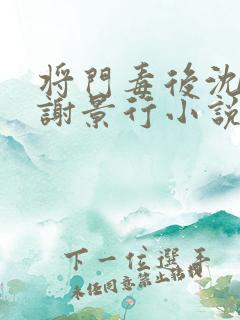 將門毒後沈
謝景行小說
下一位選手
未經同意禁止轉載